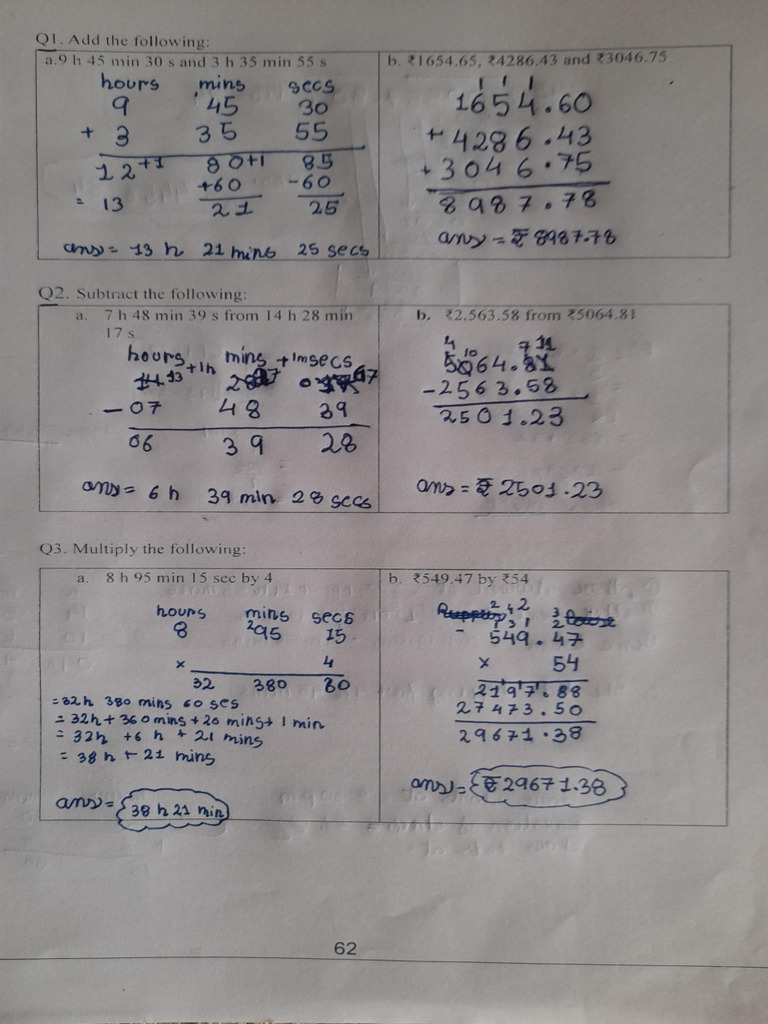 Q1. Add the following:
a.9 h 45 min 30 s and 3 h 35 min 55 s
hours mins secs
9 45 30
+ 3 35 55
12+1 80+1 85
+60 -60
= 13 21 25
ans = 13 h 21 mins 25 secs
b. ₹1654.65, ₹4286.43 and ₹3046.75
1 1 1
1654.60
+ 4286.43
+ 3046.75
8987.78
ans = ₹ 8987.78
Q2. Subtract the following:
a. 7 h 48 min 39 s from 14 h 28 min
17 s
hours +1h mins +1m secs
14 13 28
- 07 48 39
06 39 28
ans = 6 h 39 min 28 secs
b. ₹2,563.58 from ₹5064.81
4 10 7 11
5064.81
- 2563.58
2501.23
ans = ₹ 2501.23
Q3. Multiply the following:
a. 8 h 95 min 15 sec by 4
hours mins secs
8 2 95 15
× 4
32 380 60
= 32 h 380 mins 60 ses
= 32h + 360 mins + 20 mins + 1 min
= 32h + 6 h + 21 mins
= 38 h + 21 mins
ans = 38 h 21 min
b. ₹549.47 by ₹54
2 4 2 3
1 3 1 2
- 549.47
× 54
2197.88
27473.50
29671.38
ans = ₹ 29671.38
62